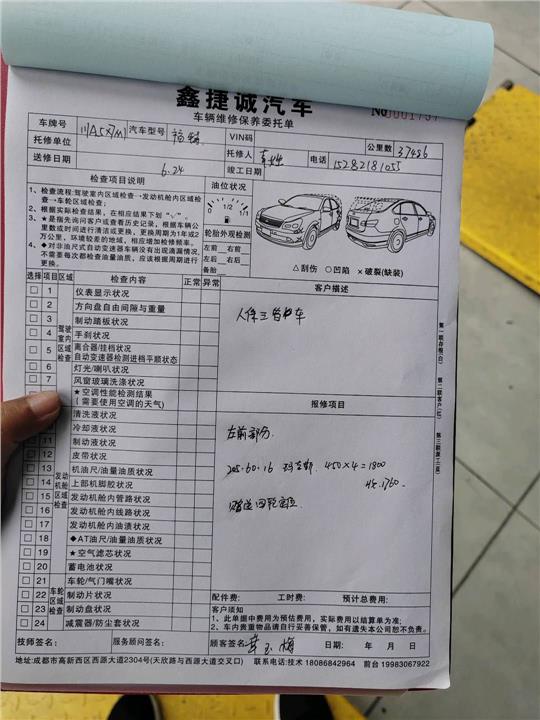 鑫捷诚汽车
车辆维修保养委托单
No 0001757
车牌号 汽车型号 VIN码 公里数 37486
托修单位 托修人 电话 15282181055
送修日期 6.24 竣工日期
检查项目说明
1、检查流程:驾驶室内区域检查→发动机舱内区域检查→车轮区域检查;
2、根据实际检查结果，在相应结果下划“√”。
3、★是指先询问客户或查看历史记录，根据车辆公里数或时间进行清洁或更换，更换周期为1年或2万公里，环境较差的地域，相应增加检修频率。
4、◆对非油尺式自动变速器车辆没有出现油滴漏情况，不需要每次都检查油量油质，应该根据周期进行更换。
油位状况
0 1/2 1/1
轮胎外观检测
左前 右前
左后 右后
备胎
△刮伤 ○凹陷 ×破裂(缺装)
选择 项目 区域 检查内容 正常 异常
驾驶室内区域检查
1 仪表显示状况
2 方向盘自由间隙与重量
3 制动踏板状况
4 手刹状况
5 离合器/挂档状况
自动变速器检测进档平顺状态
6 灯光/喇叭状况
7 风窗玻璃洗涤状况
★空调性能检测结果
(需要使用空调的天气)
发动机舱区域检查
清洗液状况
冷却液状况
11 制动液状况
12 皮带状况
13 机油尺/油量油质状况
14 上部机脚胶状况
15 发动机舱内管路状况
16 发动机舱内线路状况
17 发动机舱内油渍状况
18 ◆AT油尺/油量油质状况
19 ★空气滤芯状况
20 蓄电池状况
车轮区域检查
21 车轮/气门嘴状况
22 制动片状况
23 制动盘状况
24 减震器/防尘套状况
客户描述
人保三者中车
报修项目
左前部分
205·60·16 玛吉斯 450×4=1800
1760
赠送四轮定位
配件费: 工时费: 预计总费用:
客户须知
1、此单据中费用为预估费用，实际费用以结算单为准;
2、车内贵重物品请自行妥善保管，如有遗失本公司恕不负责。
技师签名: 服务顾问签名: 顾客签名: 日期: 年 月 日
地址:成都市高新西区西源大道2304号(天欣路与西源大道交叉口) 联系电话:技术 18086842964 前台 19983067922
第一联存根(白) 第二联客户(红) 第三联派工(蓝)